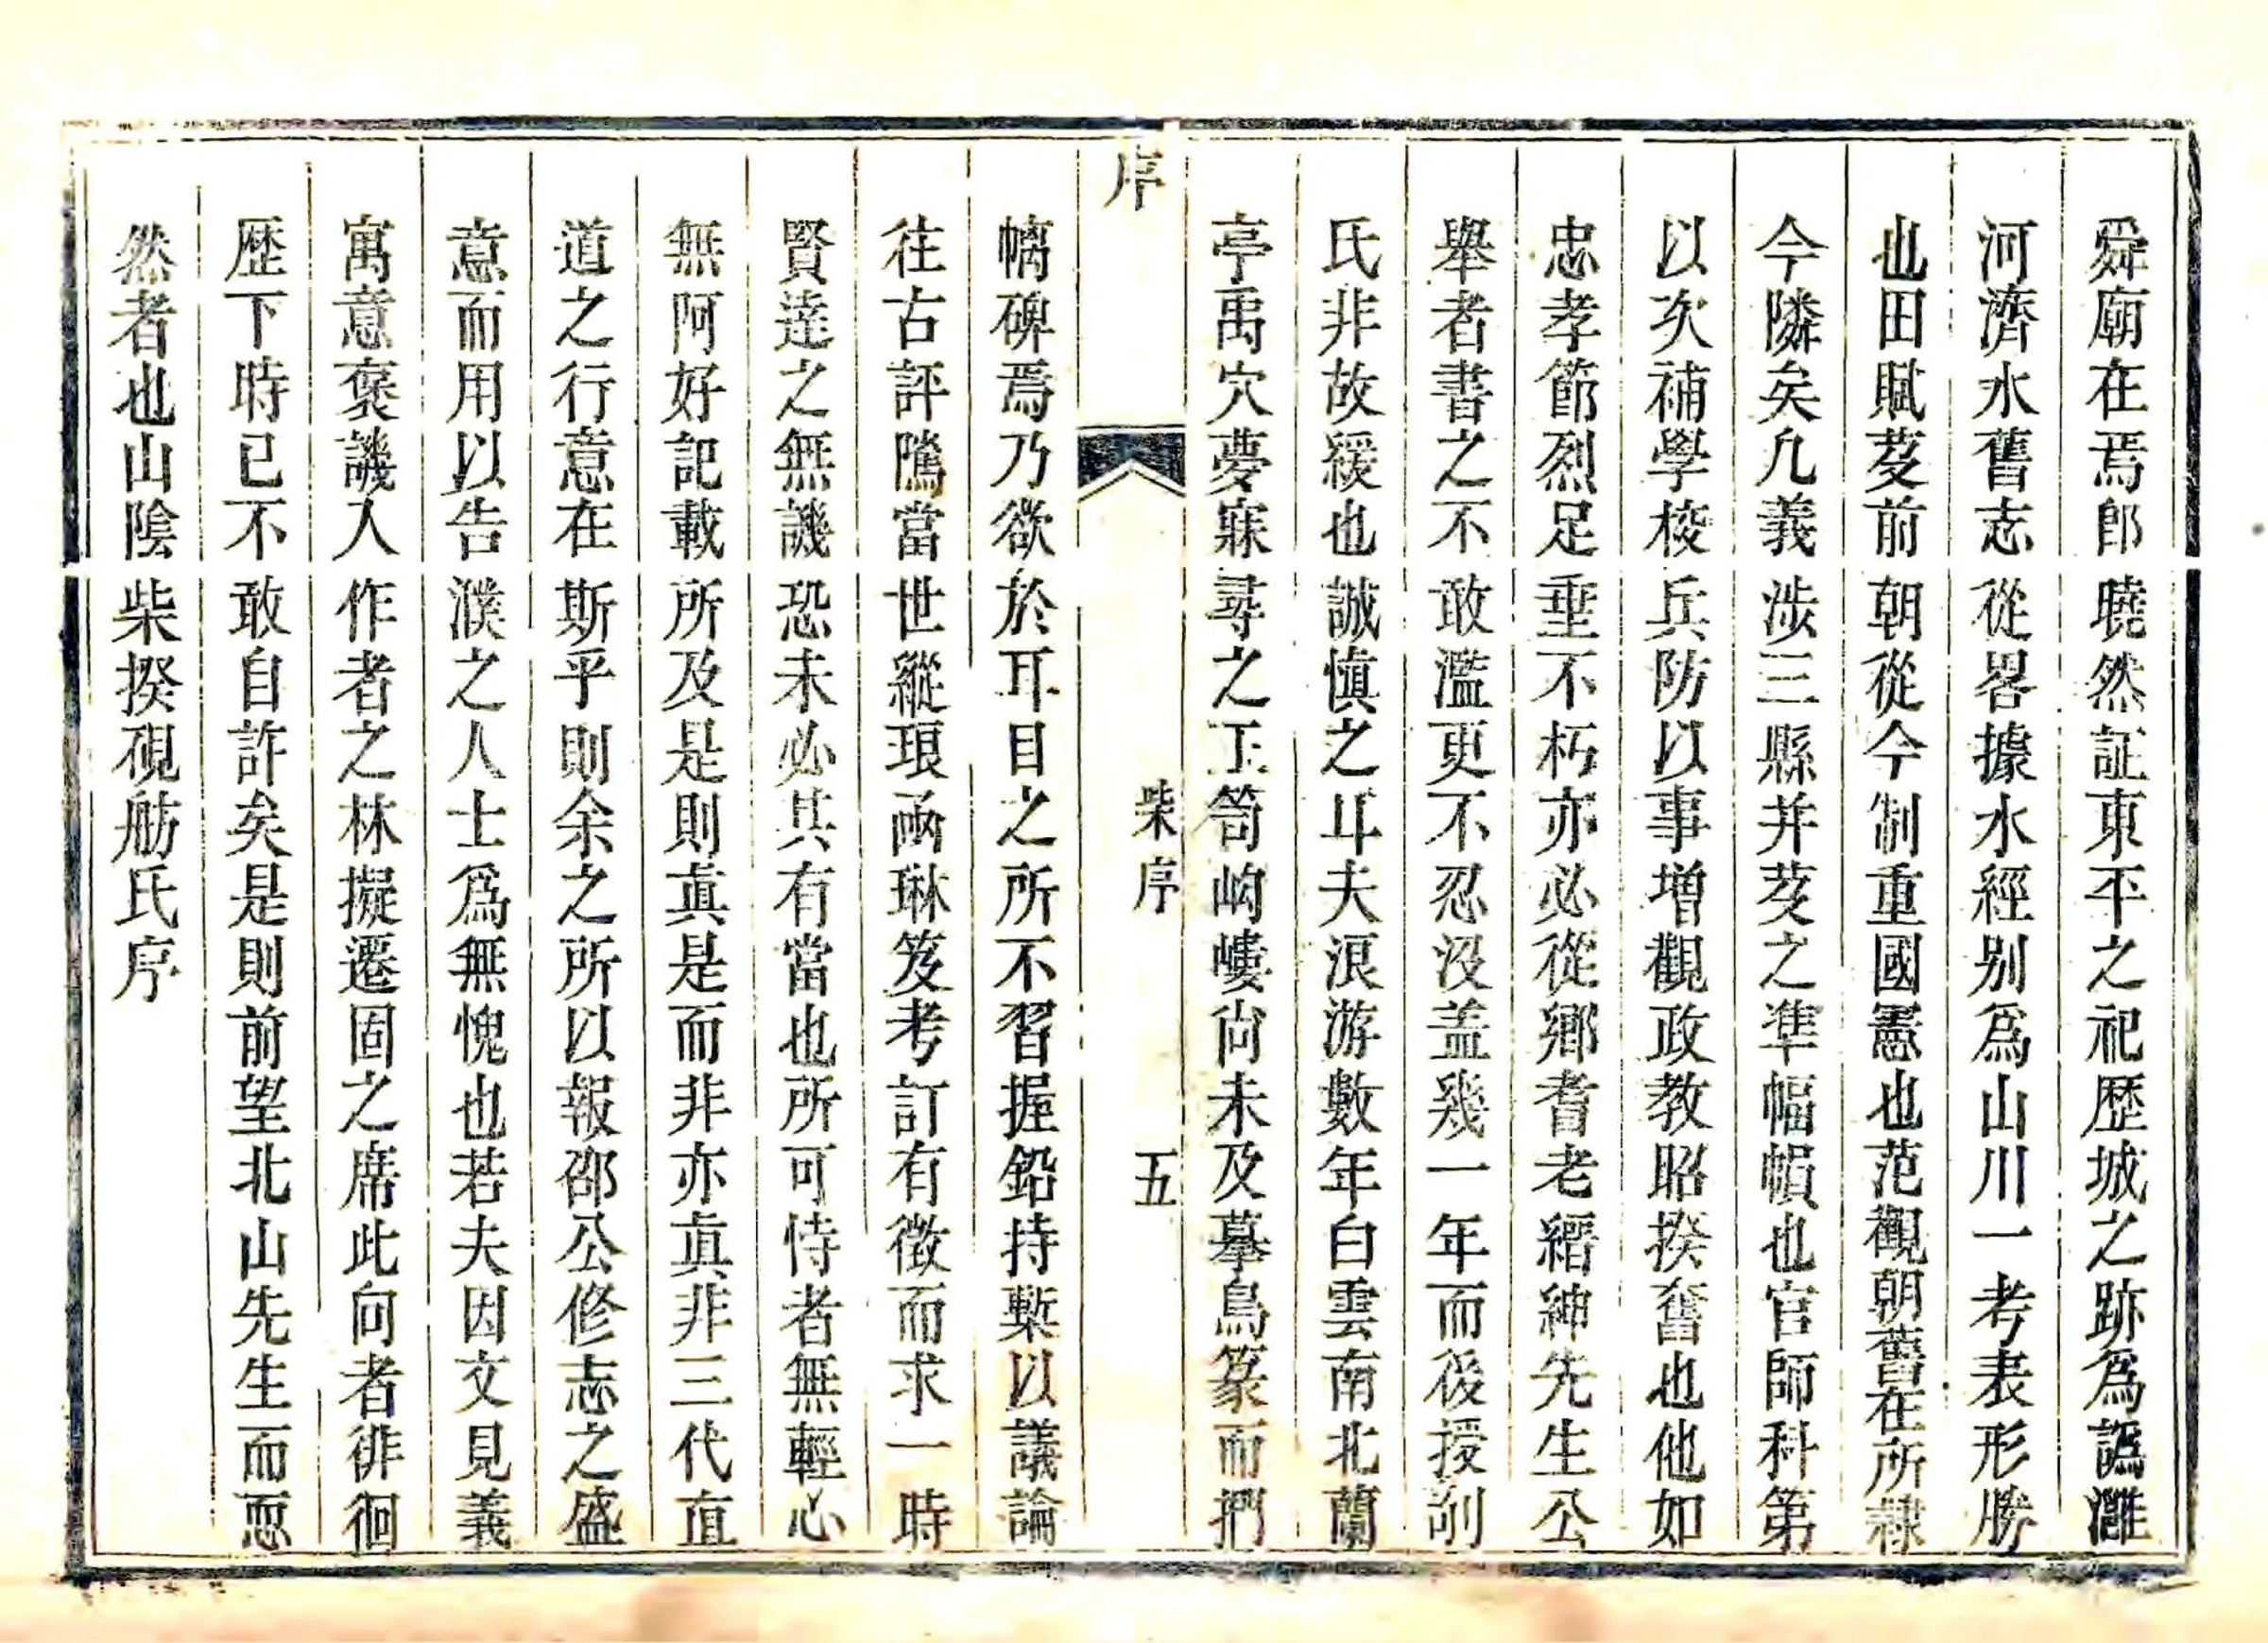 舜廟在焉郎曉然証東平之祀歷城之跡爲譌灉
河濟水舊志從畧據水經別爲山川一考表形勝
也田賦芟前朝從今制重國憲也范觀朝舊在所隸
今隣矣凡義涉三縣并芟之凖幅㡓也官師科第
以次補學校兵防以事增觀政教昭揆奮也他如
忠孝節烈足垂不朽亦必從鄉耆老縉紳先生公
舉者書之不敢濫更不忍沒盖幾一年而後授剞
氏非故緩也誠慎之耳夫浪游數年白雲南北蘭
亭禹穴夢寐尋之玉笥岣嶁尚未及摹鳥篆而捫
序
柴序
五
螭碑焉乃欲於耳目之所不習握鉛持槧以議論
往古評隲當世縱琅函琳笈考訂有徵而求一時
賢達之無譏恐未必其有當也所可恃者無輕心
無阿好記載所及是則眞是而非亦眞非三代直
道之行意在斯乎則余之所以報邵公修志之盛
意而用以告濮之人士爲無愧也若夫因文見義
寓意褒譏人作者之林擬遷固之席此向者徘徊
歷下時已不敢自許矣是則前望北山先生而恧
然者也山陰柴揆硯舫氏序